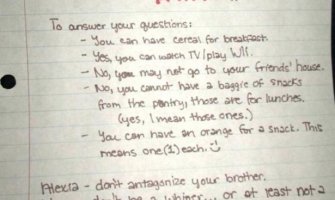 To answer your questions:
- You can have cereal for breakfast.
- Yes, you can watch TV/play Wii.
- No, you may not go to your friends' house.
- No, you cannot have a baggie of snacks
from the pantry, those are for lunches.
(yes, I mean those ones.)
- You can have an orange for a snack. This
means one (1) each.
Alexia - don't antagonize your brother.
be a whiner... or at least not a